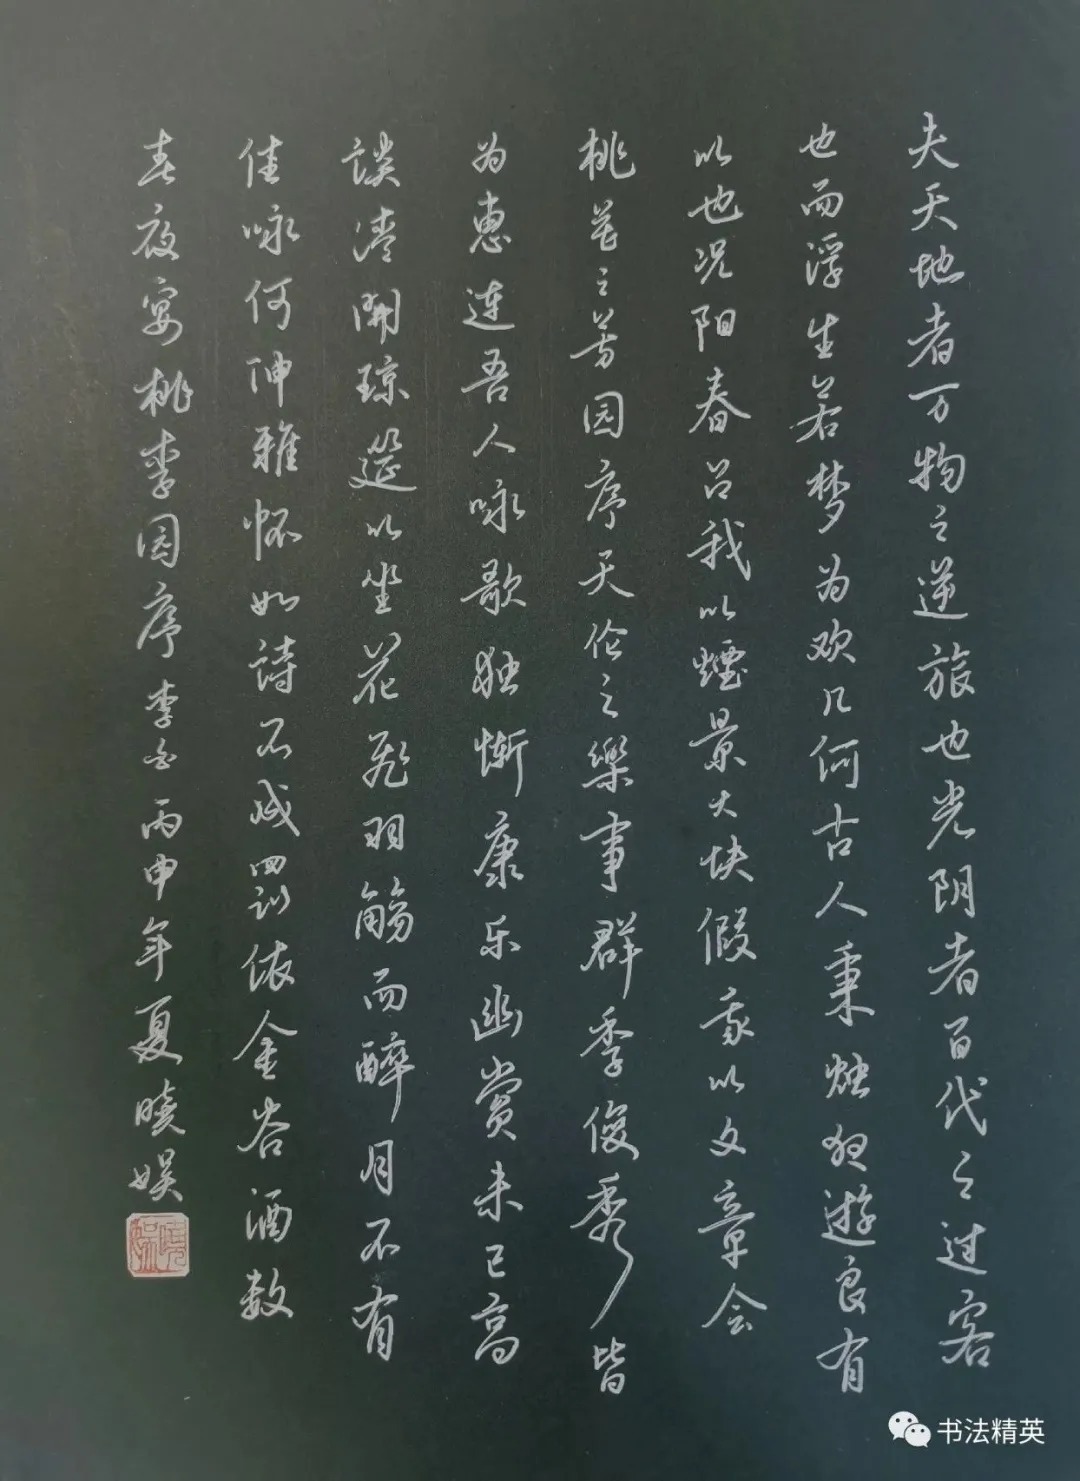 夫天地者万物之逆旅也光阴者百代之过客
也而浮生若梦为欢几何古人秉烛夜遊良有
以也况阳春召我以煙景大块假我以文章会
桃花之芳园序天伦之樂事群季俊秀皆
为惠连吾人咏歌独惭康乐幽赏未已高
谈清開琼筵以坐花飞羽觞而醉月不有
佳咏何伸雅怀如詩不成罚依金谷酒数
春夜宴桃李园序李白丙申年夏曉娱
书法精英